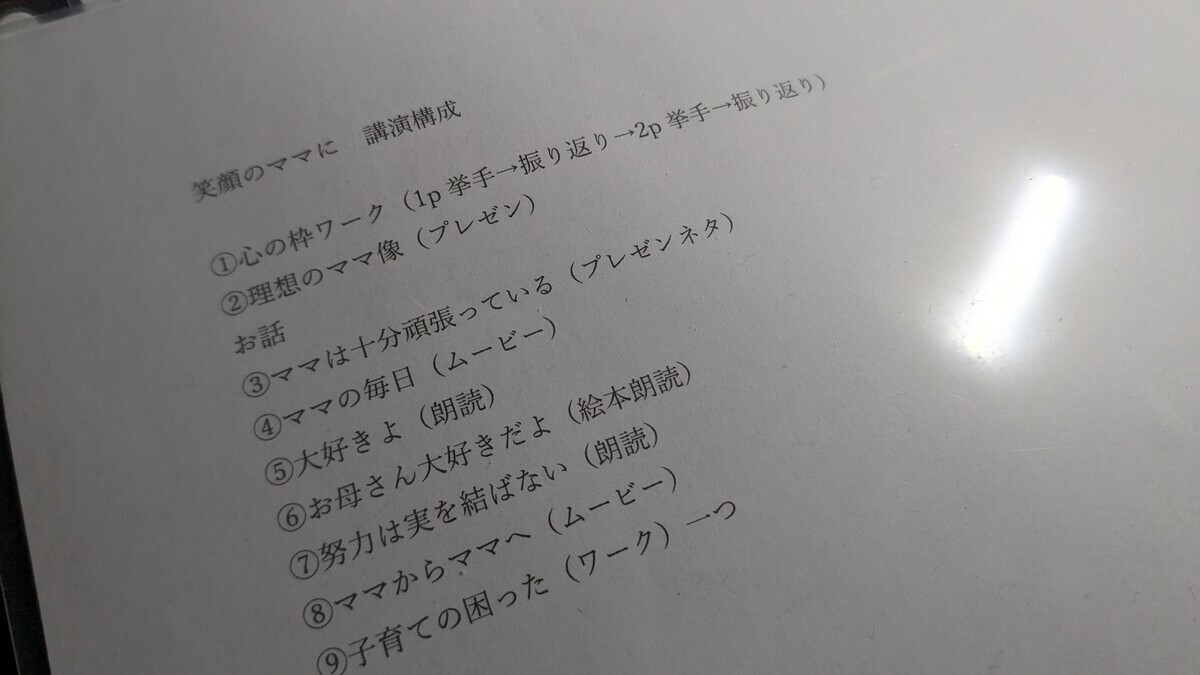 笑顔のママに　講演構成
①心の枠ワーク（1p 挙手→振り返り→2p 挙手→振り返り）
②理想のママ像（プレゼン）
お話
③ママは十分頑張っている（プレゼンネタ）
④ママの毎日（ムービー）
⑤大好きよ（朗読）
⑥お母さん大好きだよ（絵本朗読）
⑦努力は実を結ばない（朗読）
⑧ママからママへ（ムービー）
⑨子育ての困った（ワーク）一つ